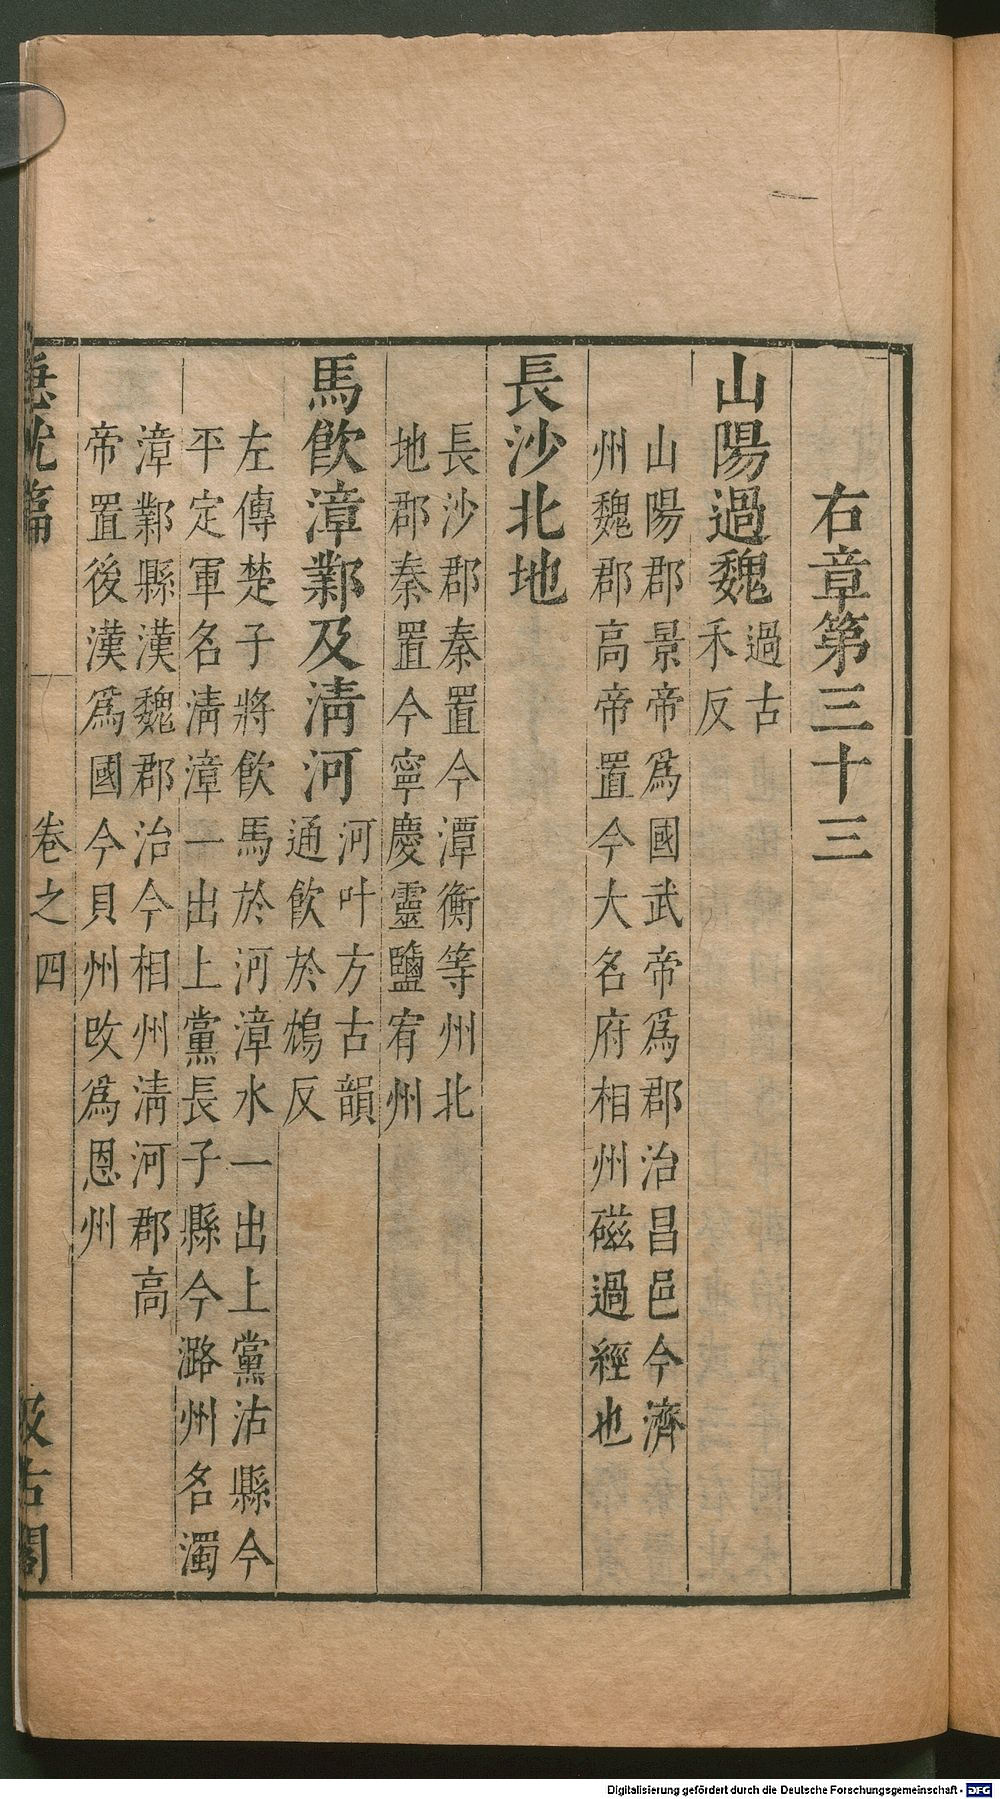 右章第三十三
山陽過魏過古
禾反
山陽郡景帝爲國武帝爲郡治昌邑今濟
州魏郡高帝置今大名府相州磁過經也
長沙北地
長沙郡秦置今潭衡等州北
地郡秦置今寧慶靈鹽宥州
馬飲漳鄴及淸河河叶方古韻
通飲於鴆反
左傳楚子將飲馬於河漳水一出上黨沾縣今
平定軍名淸漳一出上黨長子縣今潞州名濁
漳鄴縣漢魏郡治今相州淸河郡高
帝置後漢爲國今貝州改爲恩州
急就篇 卷之四 汲古閣
Digitalisierung gefördert durch die Deutsche Forschungsgemeinschaft - DFG